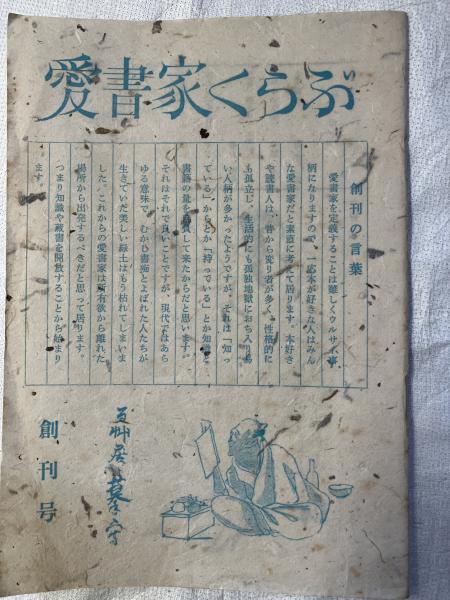 愛書家くらぶ
創刊の言葉
愛書家を定義することは難しくウルサイ事
柄になりますので、一応本が好きな人はみん
な愛書家だと素直に考て居ります。本好き
や読書人は、昔から変り者が多く、性格的に
も孤立し、生活でも孤独地獄におち入り易
い人柄が多かったようですが、それは「知っ
ている」からとか「持っている」とか知識と
書籍の量を して来たからだと思います。
それはそれで良いことですが、現代ではあら
ゆる意味で、むかし書痴とよばれた人たちが
生きていた美しい 土はもう枯れてしまいま
した。これからの愛書家は所有欲から離れた
場所から出発するべきだと思って居ります。
つまり知識や蔵書を開放することから始まり
ます。
創刊号